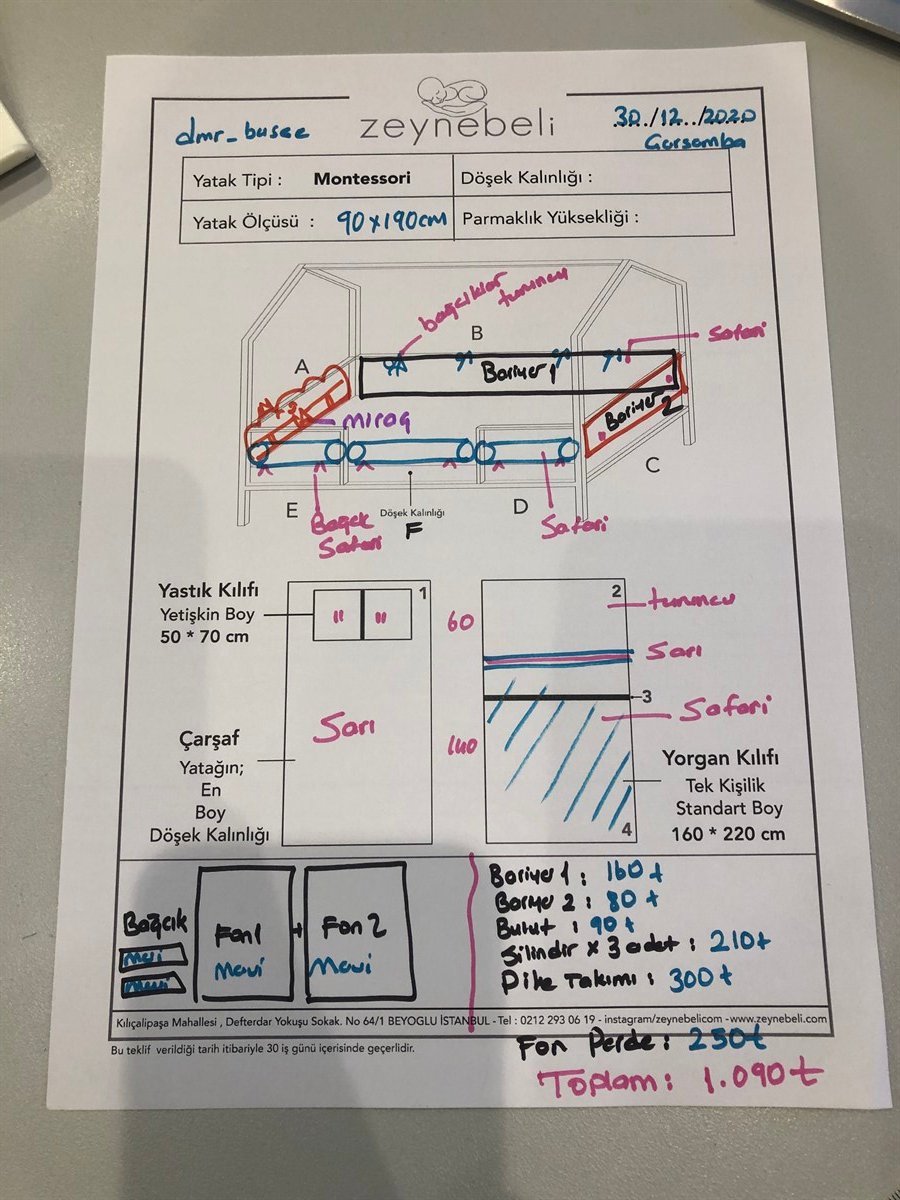 dmr_busee
zeynebeli
30./12../2020
Çarşamba
Yatak Tipi : Montessori
Döşek Kalınlığı :
Yatak Ölçüsü : 90x190cm
Parmaklık Yüksekliği :
bağcıklar
turuncu
B
Safari
A
Bariyer 1
Bariyer 2
C
E
Döşek Kalınlığı
F
D
Bağcık
Safari
Safari
Yastık Kılıfı
Yetişkin Boy
50 * 70 cm
1
60
2
turuncu
Sarı
3
Safari
Sarı
140
Çarşaf
Yatağın;
En
Boy
Döşek Kalınlığı
Yorgan Kılıfı
Tek Kişilik
Standart Boy
160 * 220 cm
4
Bağcık
Mavi
Mavi
Fon1
Mavi
+
Fon 2
Mavi
Bariyer 1 : 160t
Bariyer 2 : 80 t
Bulut : 90t
Silindir x 3 adet : 210t
Pike Takımı : 300t
Kılıçalipaşa Mahallesi , Defterdar Yokuşu Sokak. No 64/1 BEYOGLU İSTANBUL - Tel : 0212 293 06 19 - instagram/zeynebelicom -www.zeynebeli.com
Bu teklif verildiği tarih itibariyle 30 iş günü içerisinde geçerlidir.
Fon Perde : 250t
Toplam : 1.090t